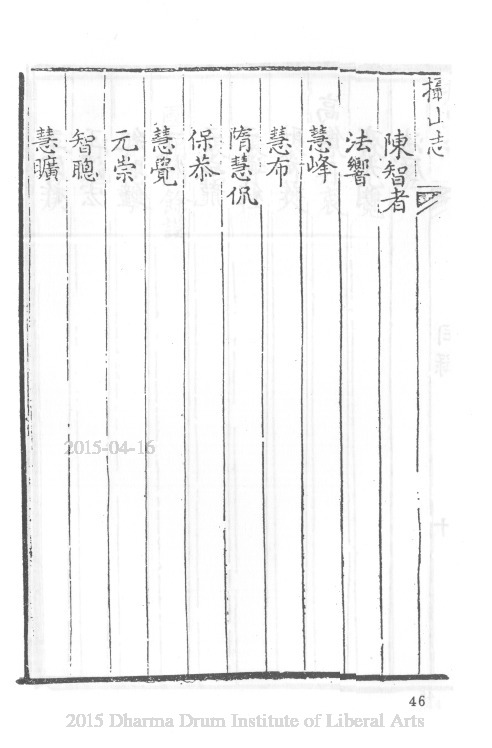 攝山志
陳智者
法響
慧峰
慧布
隋慧侃
保恭
慧覺
元崇
智聰
慧曠
2015-04-16
46
2015 Dharma Drum Institute of Liberal Arts